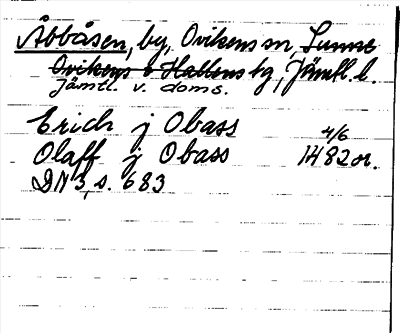 Åsbåsen, by, Ovikens sn, Sunne
Ovikens o Hallens tg, Jämtl. l.
Jämtl. v. doms.
Erich j Obass
4/6
Olaff j Obass 1482 or.
DN 3, s. 683